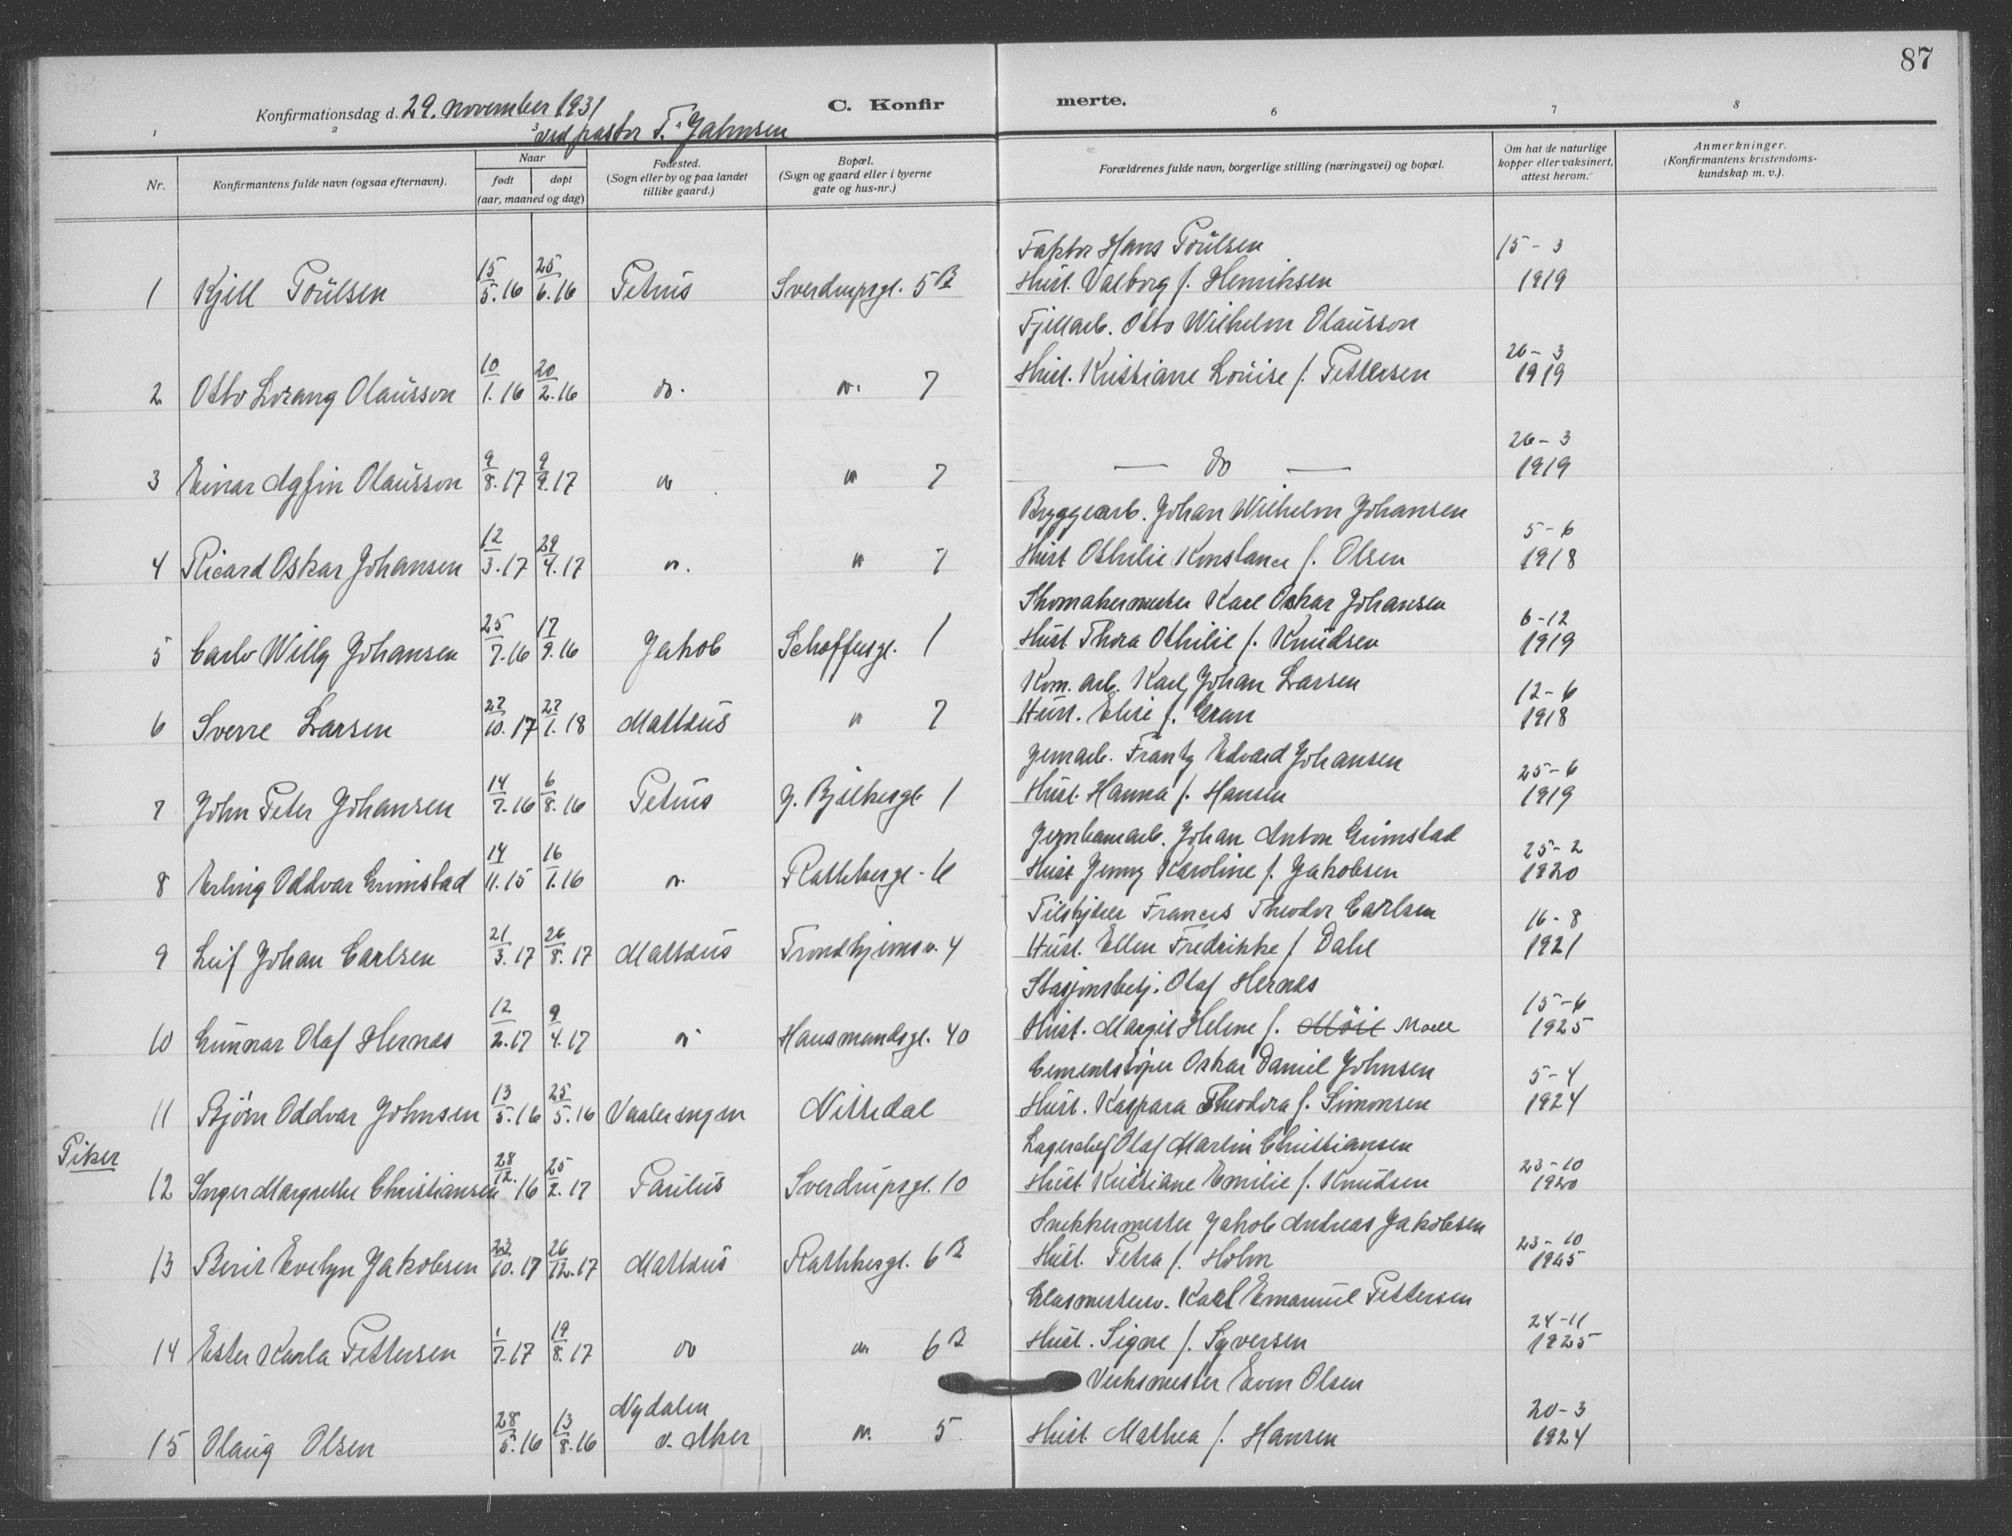 87
Konfirmationsdag d. 29. november 1931
ved pastor T. Jahnsen
C. Konfirmerte.
1 2 3 6 7 8
Nr.
Konfirmantens fulde navn (ogsaa efternavn).
Naar
født døpt
(aar, maaned og dag)
Fødested.
(Sogn eller by og paa landet
tillike gaard.)
Bopæl.
(Sogn og gaard eller i byerne
gate og hus-nr.)
Forældrenes fulde navn, borgerlige stilling (næringsvei) og bopæl.
Om hat de naturlige
kopper eller vaksinert,
attest herom.
Anmerkninger.
(Konfirmantens kristendoms-
kundskap m. v.).
Faktor Hans Poulsen 15-3
1 Kjell Poulsen 15/5.16 25/6.16 Petrus Sverdrupsgt. 5B Hust. Valborg f. Henriksen 1919
Fjellarb. Otto Wilhelm Olausson
2 Otto Lorang Olausson 10/1.16 20/2.16 do. " 7 Hust. Kristiane Louise f. Pettersen 26-3 1919
3 Einar Agfin Olausson 9/8.17 9/9.17 " " 7 — do — 26-3 1919
Bryggearb. Johan Wilhelm Johansen
4 Ricard Oskar Johansen 12/3.17 29/4.17 " " 7 Hust Othilie Konstance f. Olsen 5-6 1918
Skomakermester Karl Oskar Johansen
5 Carlo Willy Johansen 25/7.16 17/9.16 Jakob Schoffusgt. 1 Hust Thora Othilie f. Knudsen 6-12 1919
Kom. arb. Karl Johan Larsen
6 Sverre Larsen 27/10.17 27/1.18 Matteus " 7 Hust. Elise f. Gran 12-6 1918
Jernarb. Frantz Edvard Johansen
7 John Peter Johansen 14/7.16 6/8.16 Petrus J. Bjelkesgt 1 Hust. Hanna f. Hansen 25-6 1919
Jernbanearb. Johan Anton Grimstad
8 Erling Oddvar Grimstad 14/11.15 16/1.16 " Rathkesgt - 6 Hust Jenny Karoline f. Jakobsen 25-2 1920
Tilskjærer Francis Theodor Carlsen
9 Leif Johan Carlsen 21/3.17 26/8.17 Matteus Trondhjemsv. 4 Hust. Ellen Fredrikke f. Dahl 16-8 1921
Stasjonsbetj. Olaf Hernes
10 Gunnar Olaf Hernes 12/2.17 9/4.17 " Hausmandsgt. 40 Hust. Margit Helene f. Moell 15-6 1925
Cementstøper Oskar Daniel Johnsen
11 Bjørn Oddvar Johnsen 13/5.16 25/5.16 Vaalerengen Nittedal Hust. Kaspara Theodora f. Simonsen 5-4 1924
Piker
Lagerchef Olaf Martin Christiansen
12 Inger Margrethe Christiansen 28/12.16 25/2.17 Paulus Sverdrupsgt. 10 Hust Kristiane Emilie f. Knudsen 23-10 1920
Snekkermester Jakob Andreas Jakobsen
13 Berit Evelyn Jakobsen 23/10.17 26/12.17 Matteus Rathkesgt. 6B Hust. Petra f. Holm 23-10 1925
Glasmestersv. Karl Emanuel Pettersen
14 Ester Karla Pettersen 1/7.17 19/8.17 do " 6B Hust. Signe f. Syversen 24-11 1925
Verksmester Even Olsen
15 Olaug Olsen 28/5.16 13/8.16 Nydalen v. Aker " 5 Hust. Mathea f. Hansen 20-3 1924